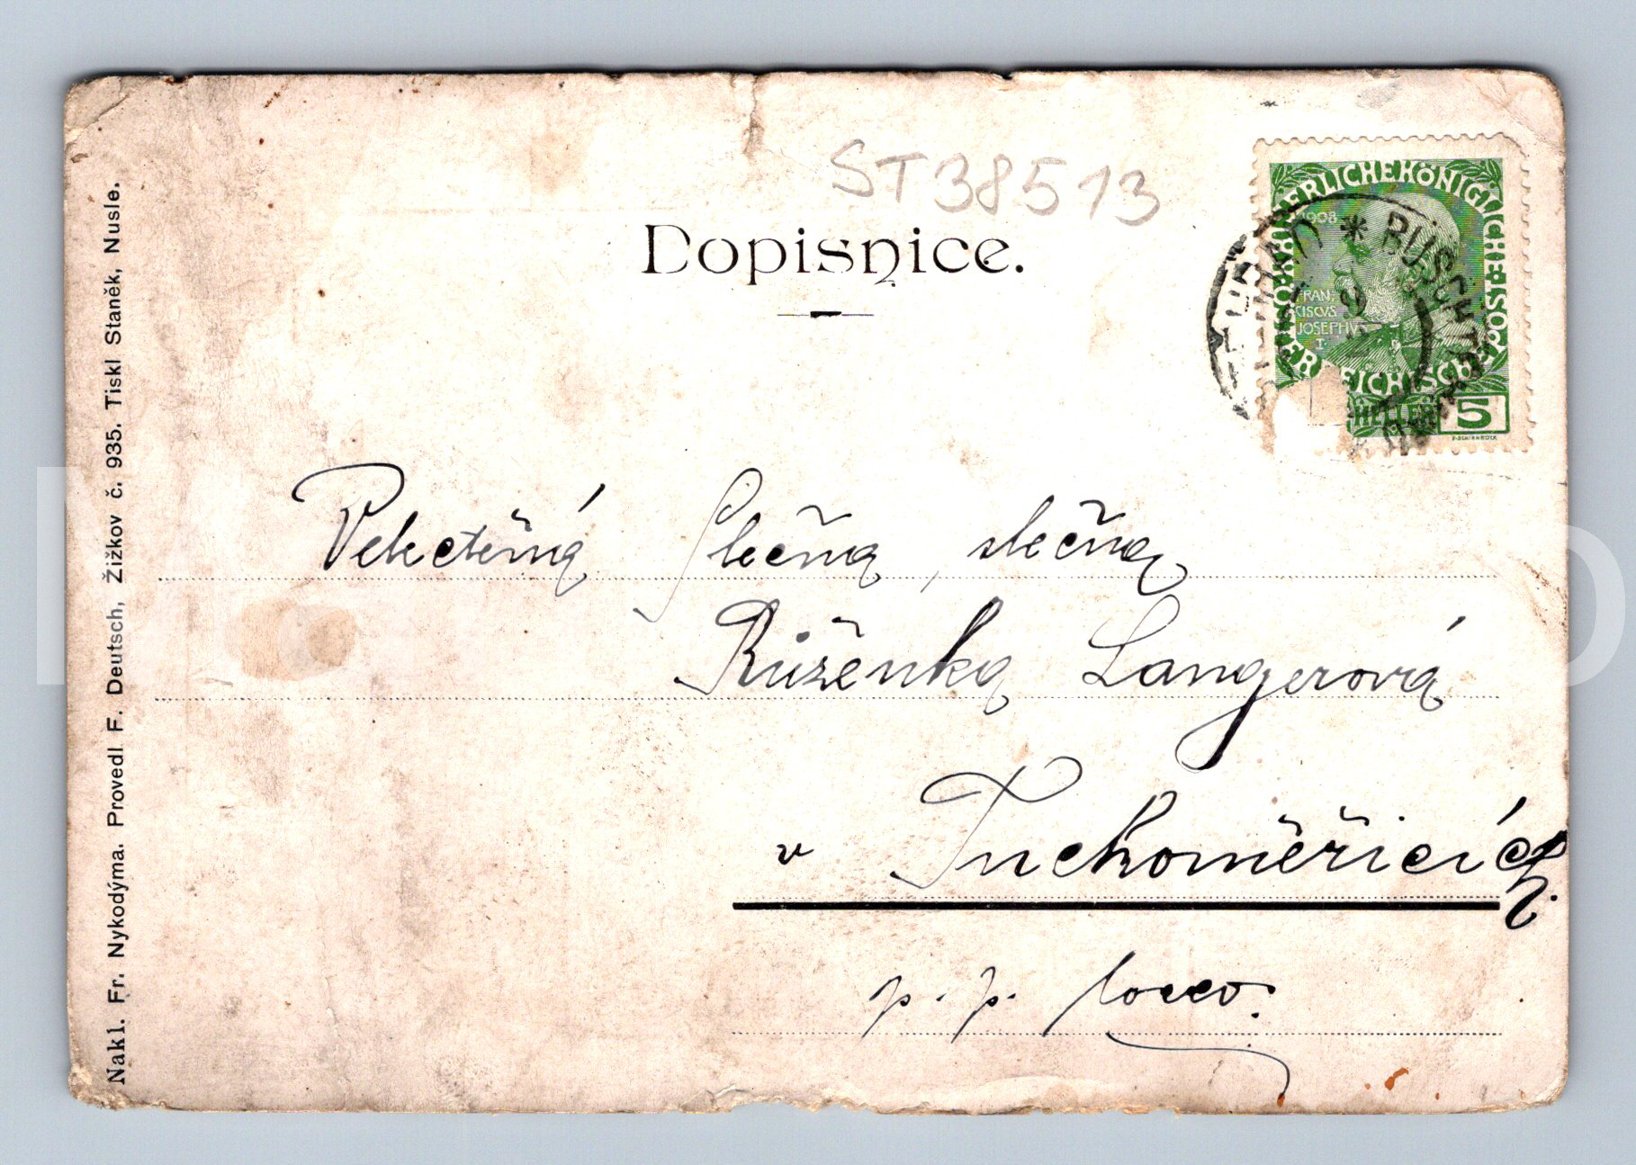 ST38513
Dopisnice.
KAISERLICHE KÖNIGLICHE ÖSTERREICHISCHE POST
1908
FRAN
CISCVS
JOSEPHVS
I
HELLER 5
* BUSCHTĚHRAD
Velectěná Slečna, slečna
Růženka Langerová
v Tuchoměřicích.
p. p. loco.
Nakl. Fr. Nykodýma. Provedl F. Deutsch, Žižkov č. 935. Tiskl Staněk, Nusle.